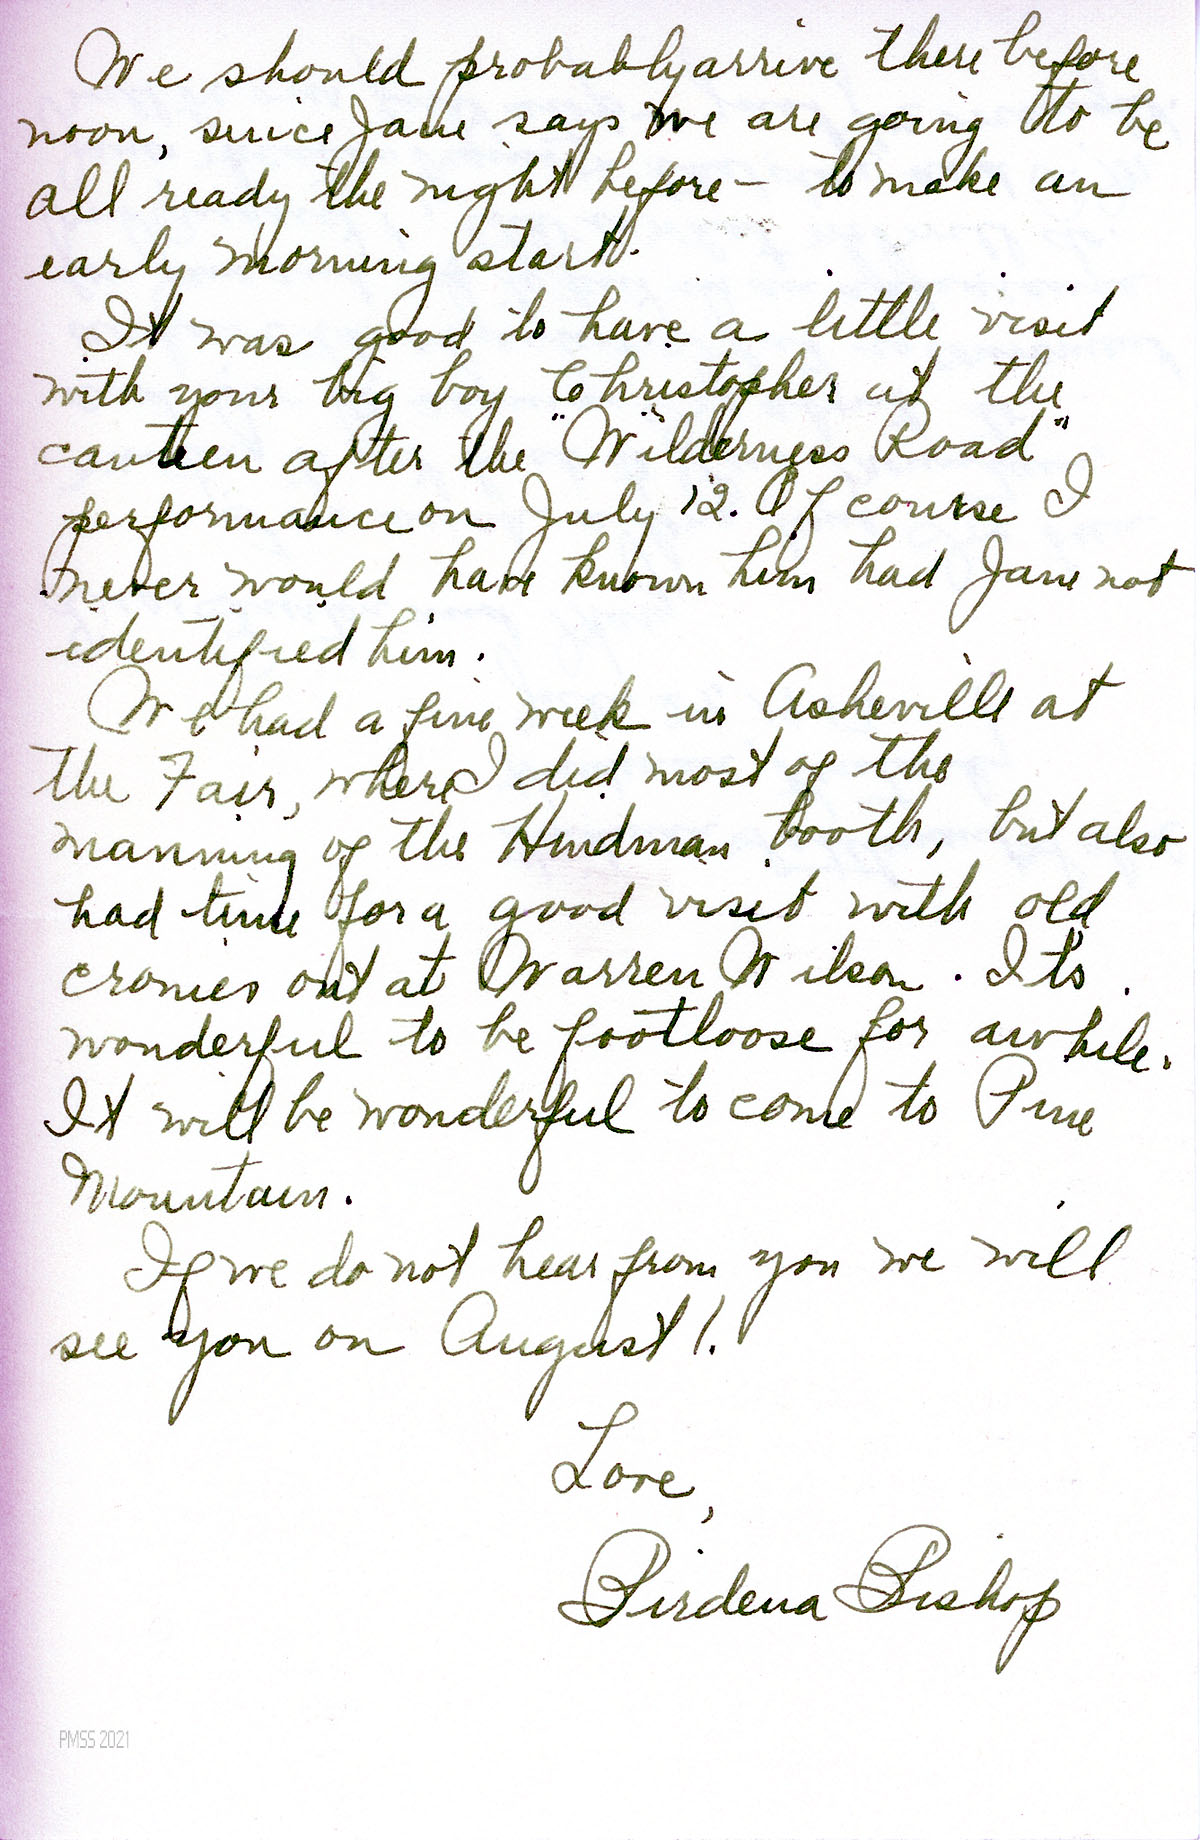 We should probably arrive there before
noon, since Jane says we are going to be
all ready the night before — to make an
early morning start.
It was good to have a little visit
with your big boy Christopher at the
canteen after the "Wilderness Road"
performance on July 12. Of course I
never would have known him had Jane not
identified him.
We had a fine week in Asheville at
the Fair, where I did most of the
manning of the Hindman booth, but also
had time for a good visit with old
cronies out at Warren Wilson. It's
wonderful to be footloose for awhile.
It will be wonderful to come to Pine
Mountain.
If we do not hear from you we will
see you on August 1.
Love,
Birdena Bishop
PMSS 2021